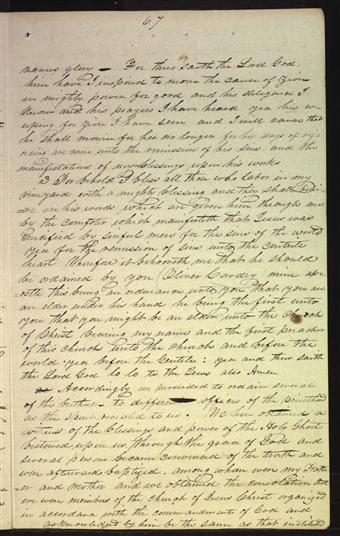 67
names glory — For thus saith the Lord God,
him have I inspired to move the cause of Zion
in mighty power for good and his diligence I
know and his prayers I have heard yea his we
eping for Zion I have seen and I will cause that
he shall mourn for her no longer for his days of rejoi
cing are come unto the remission of his sins and the
manifestations of my blessings upon his works
2 For behold I bless all those who labor in my
vineyard with a mighty blessing and they shall beli
eve on his words which are given him through me
by the comforter which manifesteth that Jesus was
crucified by sinful men for the sins of the world
yea for the remission of sins unto the contrite
heart Wherefore it behooveth me that he should
be ordained by you Oliver Cowdry mine apo
stle this being an ordinance unto you that you are
an elder under his hand he being the first unto
you that you might be an elder unto the church
of Christ bearing my name and the first preacher
of this church unto the church and before the
world yea before the Gentiles: yea and thus saith
the Lord God lo lo to the Jews also Amen
Accordingly we proceeded to ordain several
of the brethren to different offices of the priesthood
as the Spirit to us. We
witness of the blessings and power of the Holy Ghost
bestowed upon us, through the grace of God and
several persons became convinced of the truth and
were afterwards baptized. among whom were my Fath
er and Mother and we obtained the consolation that
we were members of the church of Jesus Christ organized
in accordance with the commandments of God and
acknowledged by him be the same as that instituted